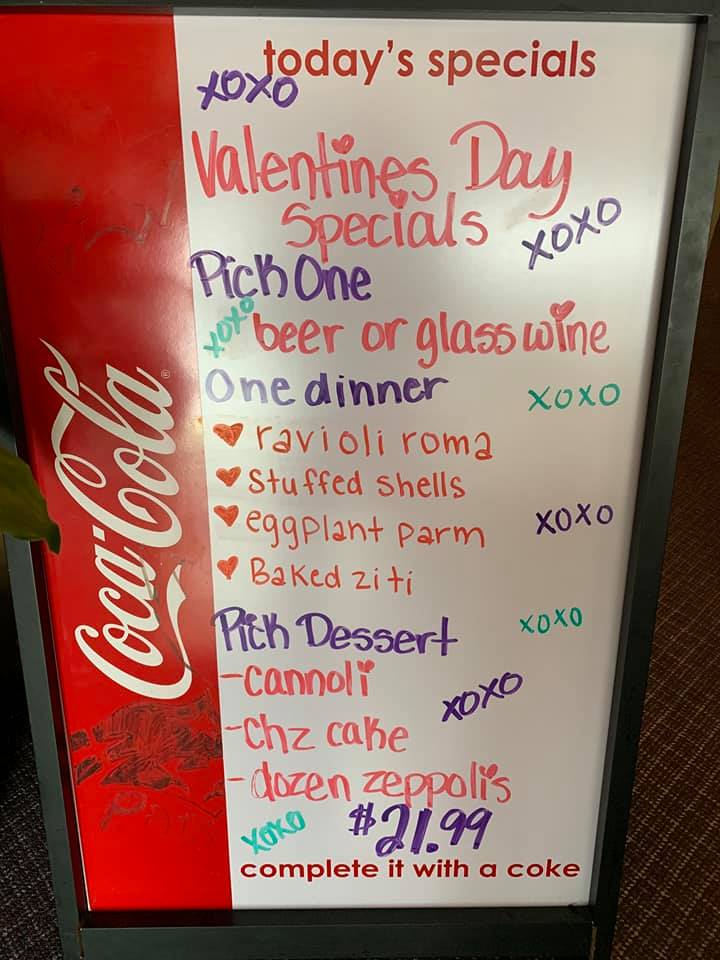 today's specials
xoxo
Valentines Day
Specials
xoxo
Pick One
xoxo
beer or glass wine
One dinner
xoxo
ravioli roma
Stuffed shells
eggplant parm
xoxo
Baked ziti
Pick Dessert
xoxo
-cannoli
xoxo
-chz cake
-dozen zeppolis
$21.99
xoxo
complete it with a coke
Coca-Cola
®